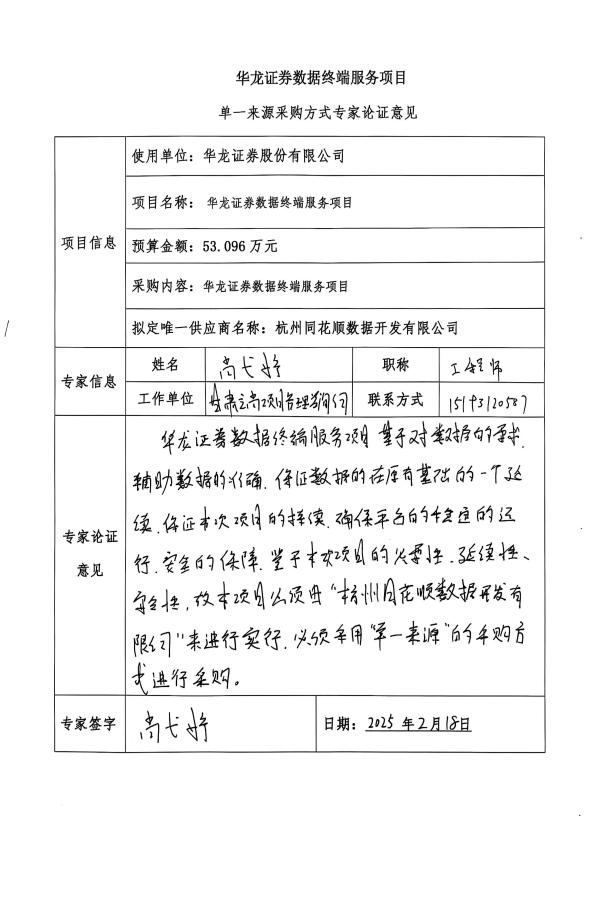 华龙证券数据终端服务项目
单一来源采购方式专家论证意见
项目信息
使用单位：华龙证券股份有限公司
项目名称：华龙证券数据终端服务项目
预算金额：53.096 万元
采购内容：华龙证券数据终端服务项目
拟定唯一供应商名称：杭州同花顺数据开发有限公司
专家信息
姓名 职称 工程师
工作单位 项目管理有限公司 联系方式
专家论证
意见
华龙证券数据终端服务项目基于对数据的需求、
辅助数据的准确、保证数据的在原有基础的一个延
续、保证本次项目的持续、确保平台的稳定的运
行、安全的保障。鉴于本次项目的必要性、延续性、
安全性，故本项目必须由“杭州同花顺数据开发有
限公司”来进行实行，必须采用“单一来源”的采购方
式进行采购。
专家签字
日期：2025 年 2 月 18 日